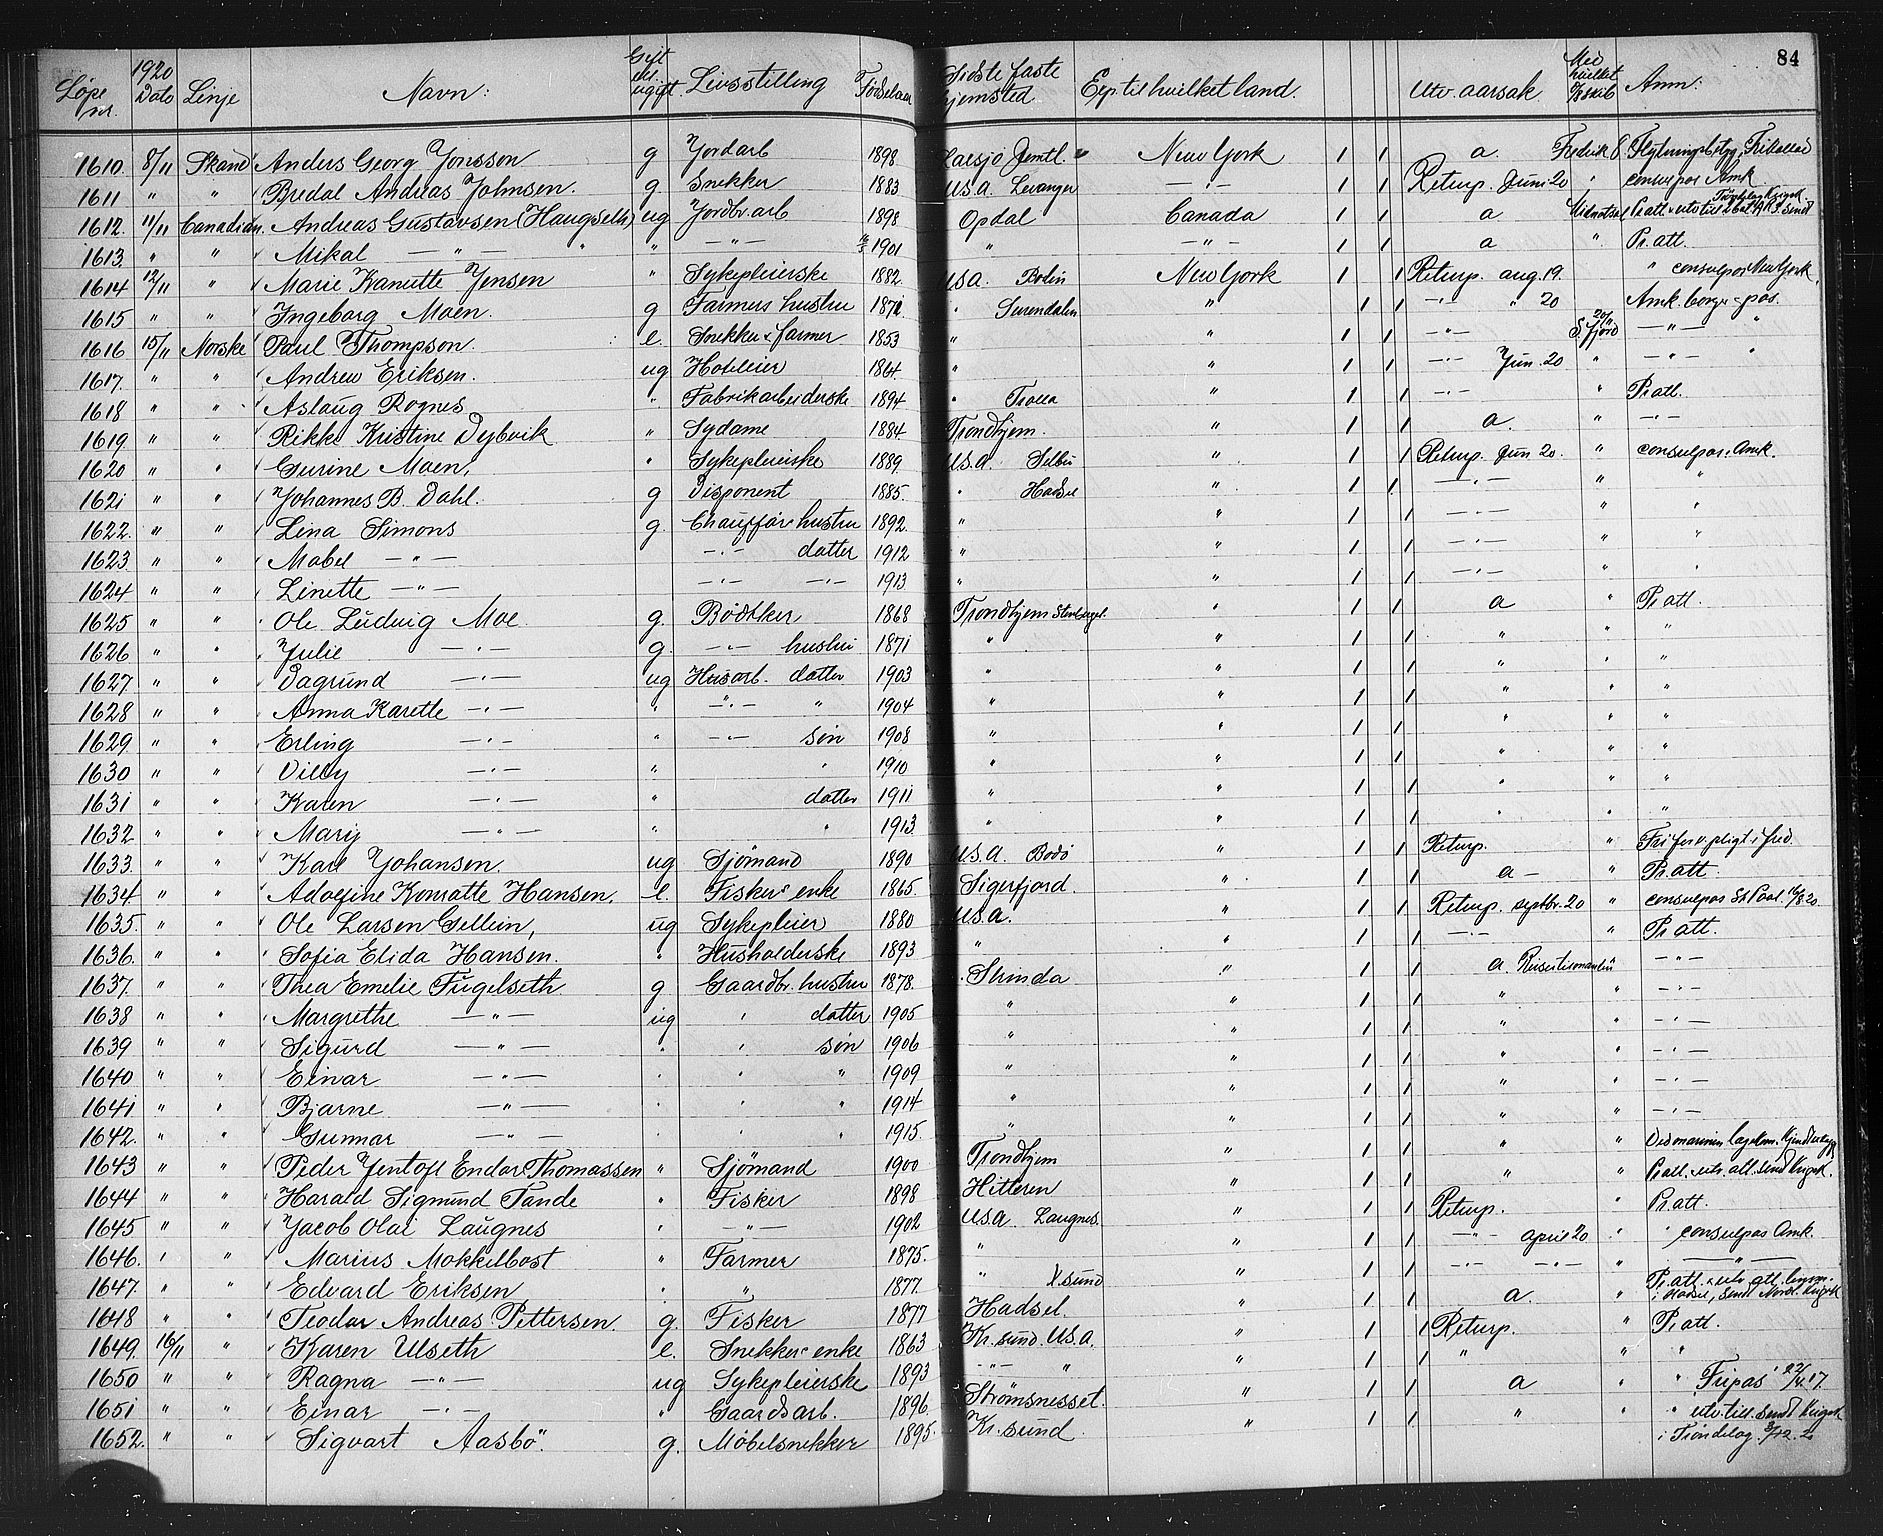 84
Løpe nr. 1920 Dato Linje Navn: Gift el. ugift. Livsstilling Fødselsaar Sidste faste hjemsted Exp. til hvilket land. Utv. aarsak Med hvilket skib Anm.
1610 8/11 Skand Anders Georg Jonsson g Jordarb 1898 Jemtl. New York 1 1 a. Fredrik 8
1611 " " Bredal Andreas Johnsen. g Snekker 1883 U.S.A. Levanger — " — 1 1 Returp. Juni 20 " consulpas Amk
1612 11/11 Canadian. Andreas Gustavsen (Haugseth) ug Jordbr. arb 1898 Opdal Canada 1 1 a
1613 " " Mikal — " — " " — " — 1901 " — " — 1 1 a " Pr. att.
1614 12/11 " Marie Kanutte Jensen " Sykepleierske 1882 U.S.A. Bodin New York 1 1 Returp. aug. 19. " consulpas New York
1615 " " Ingeborg Moen. g Farmers hustru " Surendalen " 1 1 — " — " 20 Amk. borger pas.
1616 15/11 Norske Paul Thompson e. Snekker & farmer 1853 " " 1 1 — " — S. fjord 20/11 — " — "
1617. " " Andrew Eriksen. ug Hoteleier 1864. " " 1 1 — " — Jun. 20 " — " — "
1618 " " Aslaug Rognes " Fabrikarbeiderske 1894 " Trolla " 1 1 — " — " Pr. att.
1619 " " Rikke Kristine Dybvik " Sydame 1884 Trondhjem. " 1 1 a. " — " —
1620 " " Gurine Moen, " Sykepleierske 1889 U.S.A. Selbu " 1 1 Returp. Jun. 20. " consulpas. Amk.
1621 " " Johannes B. Dahl. g Disponent 1885. " Hadsel " 1 1 — " — " "
1622. " " Lina Simons g. Chauffør hustru 1892. " " 1 1 — " — " "
1623 " " Mabel — " — — " — datter 1912 " " 1 1 — " — " "
1624 " " Linette — " — — " — — " — 1913 " " 1 1 — " — " "
1625 " " Ole Ludvig Moe g. Bødtker 1868 Trondhjem " 1 1 a " Pr. att.
1626 " " Julie — " — g. — " — hustru 1871 " " 1 1 " " "
1627 " " Dagrund — " — ug Husarb. datter 1903 " " 1 1 " " "
1628 " " Anna Karette — " — " — " — " 1904 " " 1 1 " " "
1629 " " Erling — " — " — " — søn 1908 " " 1 1 " " "
1630 " " Villy — " — " " 1910 " " 1 1 " " "
1631 " " Karen — " — " datter 1911 " " 1 1 " " "
1632 " " Mary — " — " " 1913 " " 1 1 " " "
1633 " " Karl Johansen. ug Sjömand 1890 U.S.A. Bodø " 1 1 Returp. " Fri for v. pligt i fred.
1634 " " Adolfine Konratte Hansen. e. Fiskers enke 1865 Sigerfjord " 1 1 a — " Pr. att.
1635 " " Ole Larsen Gellein, ug Sykepleier 1880 U.S.A. " 1 1 Returp. septbr. 20 " consulpas St. Paul 16/8 20
1636 " " Sofia Elida Hansen. " Husholderske 1893 " " 1 1 — " — " Pr. att.
1637. " " Thea Emelie Fugelseth g Gaardbr. hustru 1878. Strinda " 1 1 a. Reiser til manden — " —
1638 " " Margrethe — " — ug " datter 1905 " " 1 1 " " — " —
1639 " " Sigurd — " — " " søn 1906 " " 1 1 " " — " —
1640 " " Einar — " — " " " 1909 " " 1 1 " " — " —
1641 " " Bjarne — " — " " " 1914 " " 1 1 " " — " —
1642. " " Gunnar — " — " " " 1915. " " 1 1 " " — " —
1643 " " Peder Jentoft Endor Thomassen " Sjömand 1900 Trondhjem " 1 1 " "
1644 " " Harald Sigmund Tande " Fisker 1898 Hitteren " 1 1 " " Pr. att. utv. att. Send Krigsk.
1645 " " Jacob Olai Laugnes " — " — 1902 U.S.A. Laugnes. " 1 1 Returp. " Pr. att.
1646. " " Marius Mokkelbost " Farmer 1875. " " 1 1 — " — april 20 " " consulpas Amk.
1647. " " Edvard Eriksen " " 1877. " X sund " 1 1 — " — — " — " — " —
1648 " " Teodor Andreas Pettersen. g. Fisker 1877 Hadsel. " 1 1 a. " Pr. att. & utv. att. i Hadsel, Send Nordl. Krigsk
1649. 16/11 " Karen Ulseth e. Snekkers enke 1863 Kr. sund. U.S.A. " 1 1 Returp. " Pr. att.
1650 " " Ragna — " — ug Sykepleierske 1893 — " — " " 1 1 " " "
1651 " " Einar — " — " Gaardsarb. 1896 Strømsnesset. " 1 1 a " " Fripas 22/4 17.
1652. " " Sigvart Aasbö. g. Møbelsnekker 1895. Kr. sund. " 1 1 " " " utv. till. Send Krigsk i Trøndelag.